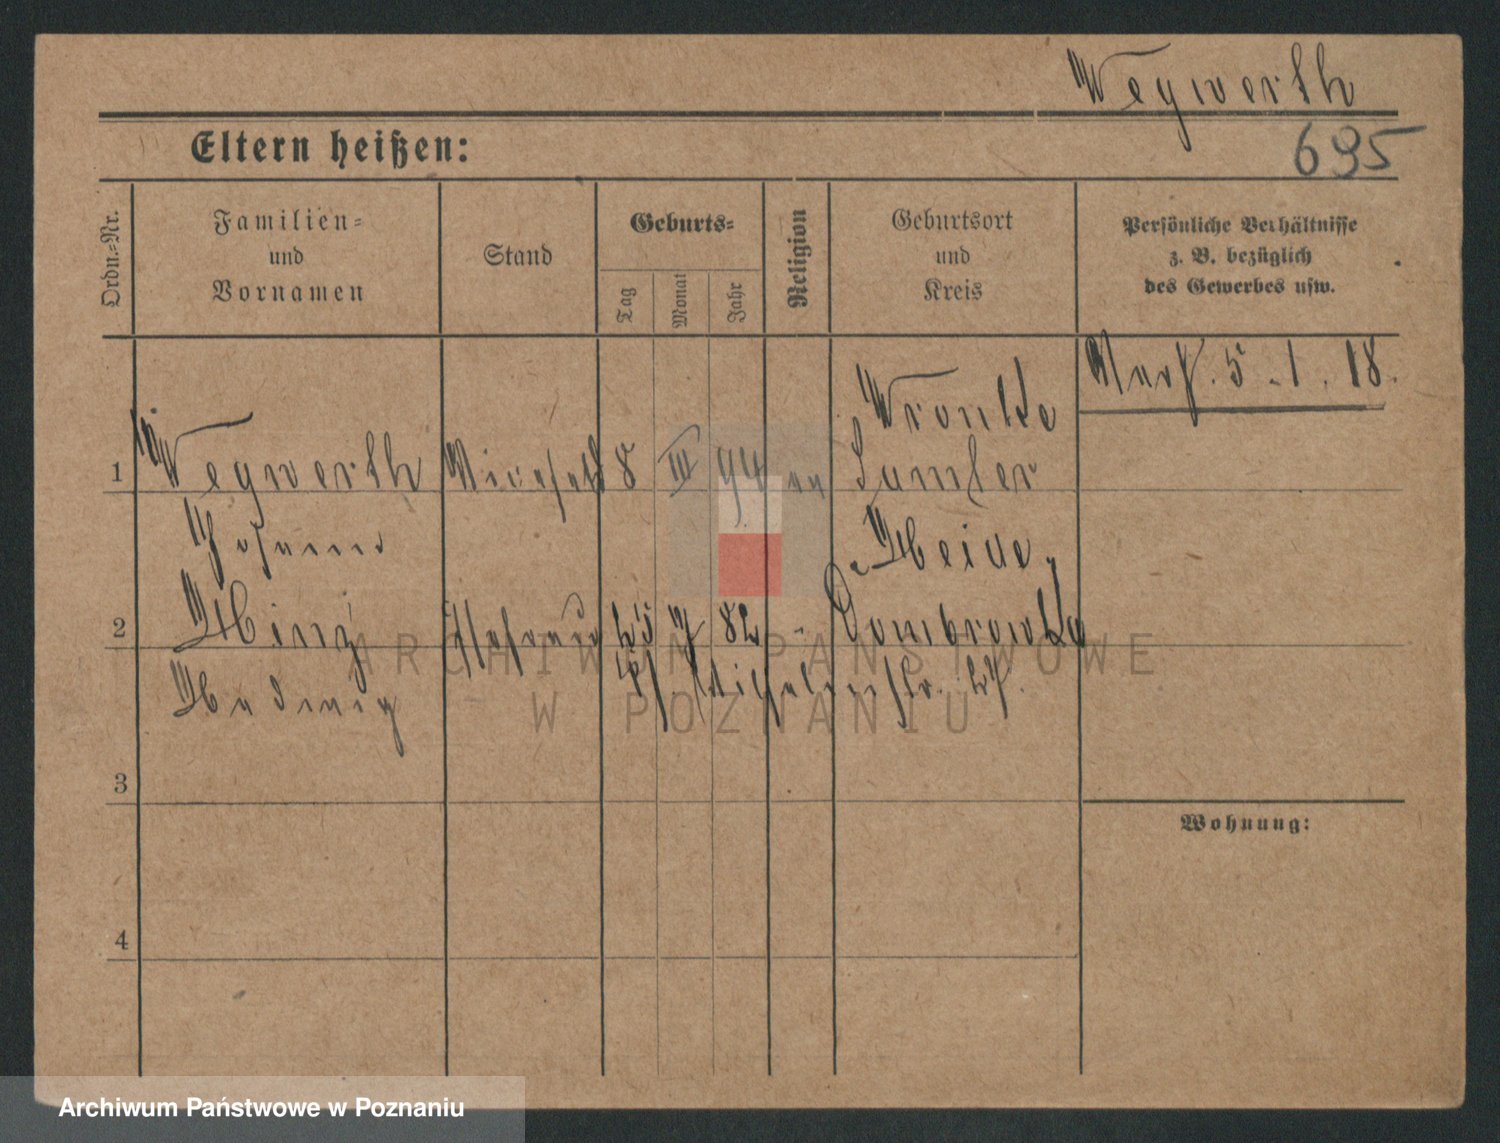 Wegwerth
695
Eltern heißen:
Ordn.-Nr.
Familien-
und
Vornamen
Stand
Geburts-
Tag
Monat
Jahr
Religion
Geburtsort
und
Kreis
Persönliche Verhältnisse
z. B. bezüglich
des Gewerbes usw.
5. 1. 18.
Wronke
1 Wegwerth 8 III 94 Samter
Johann
2 25 82 Dombrowka
Hedwig 27.
3
Wohnung:
4
ARCHIWUM PAŃSTWOWE
W POZNANIU
Archiwum Państwowe w Poznaniu